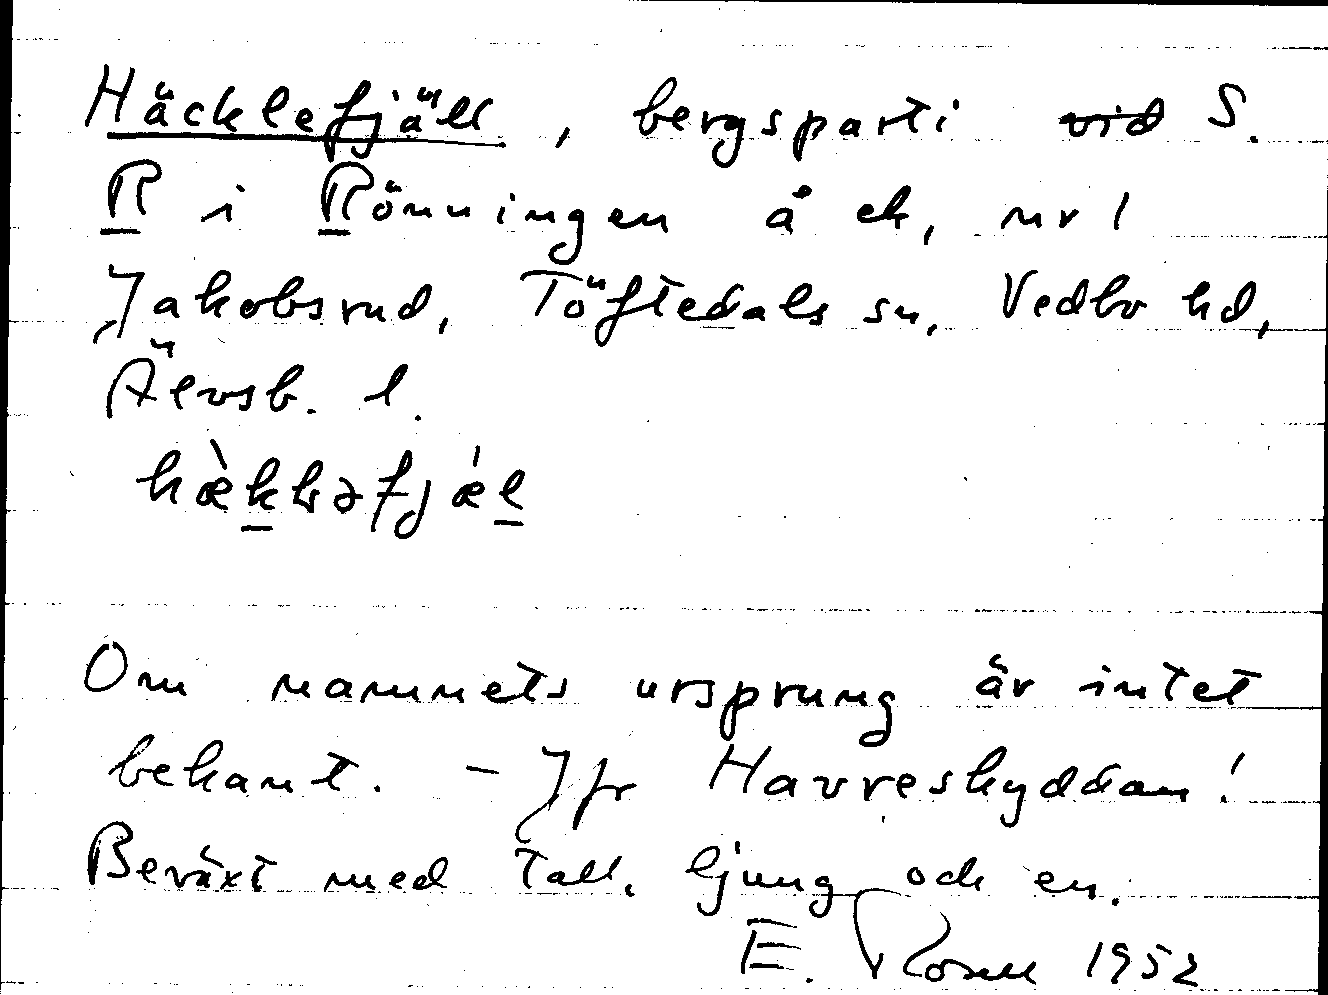 Häcklefjäll, bergsparti vid S.
R i Rönningen å ek, nr 1
Jakobsrud, Töftedals sn, Vedbo hd,
Älvsb. l.
Om namnets ursprung är intet
bekant. - Jfr Havreskyddan!
Beväxt med tall, ljung och en.
E. 1952